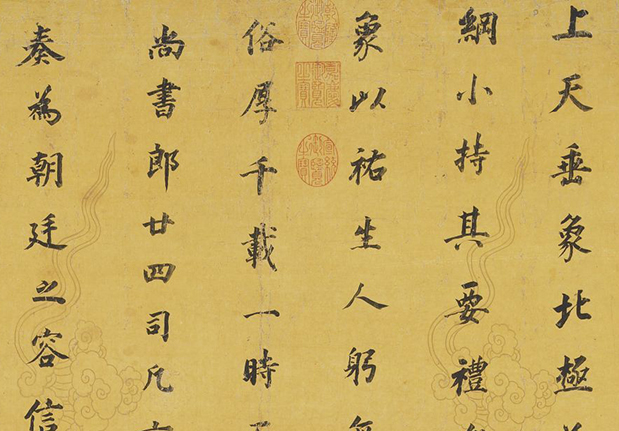 上天垂象北極
綱小持其要禮
象以祐生人躬
俗厚千載一時
尚書郎廿四司凡
奏為朝廷之容信